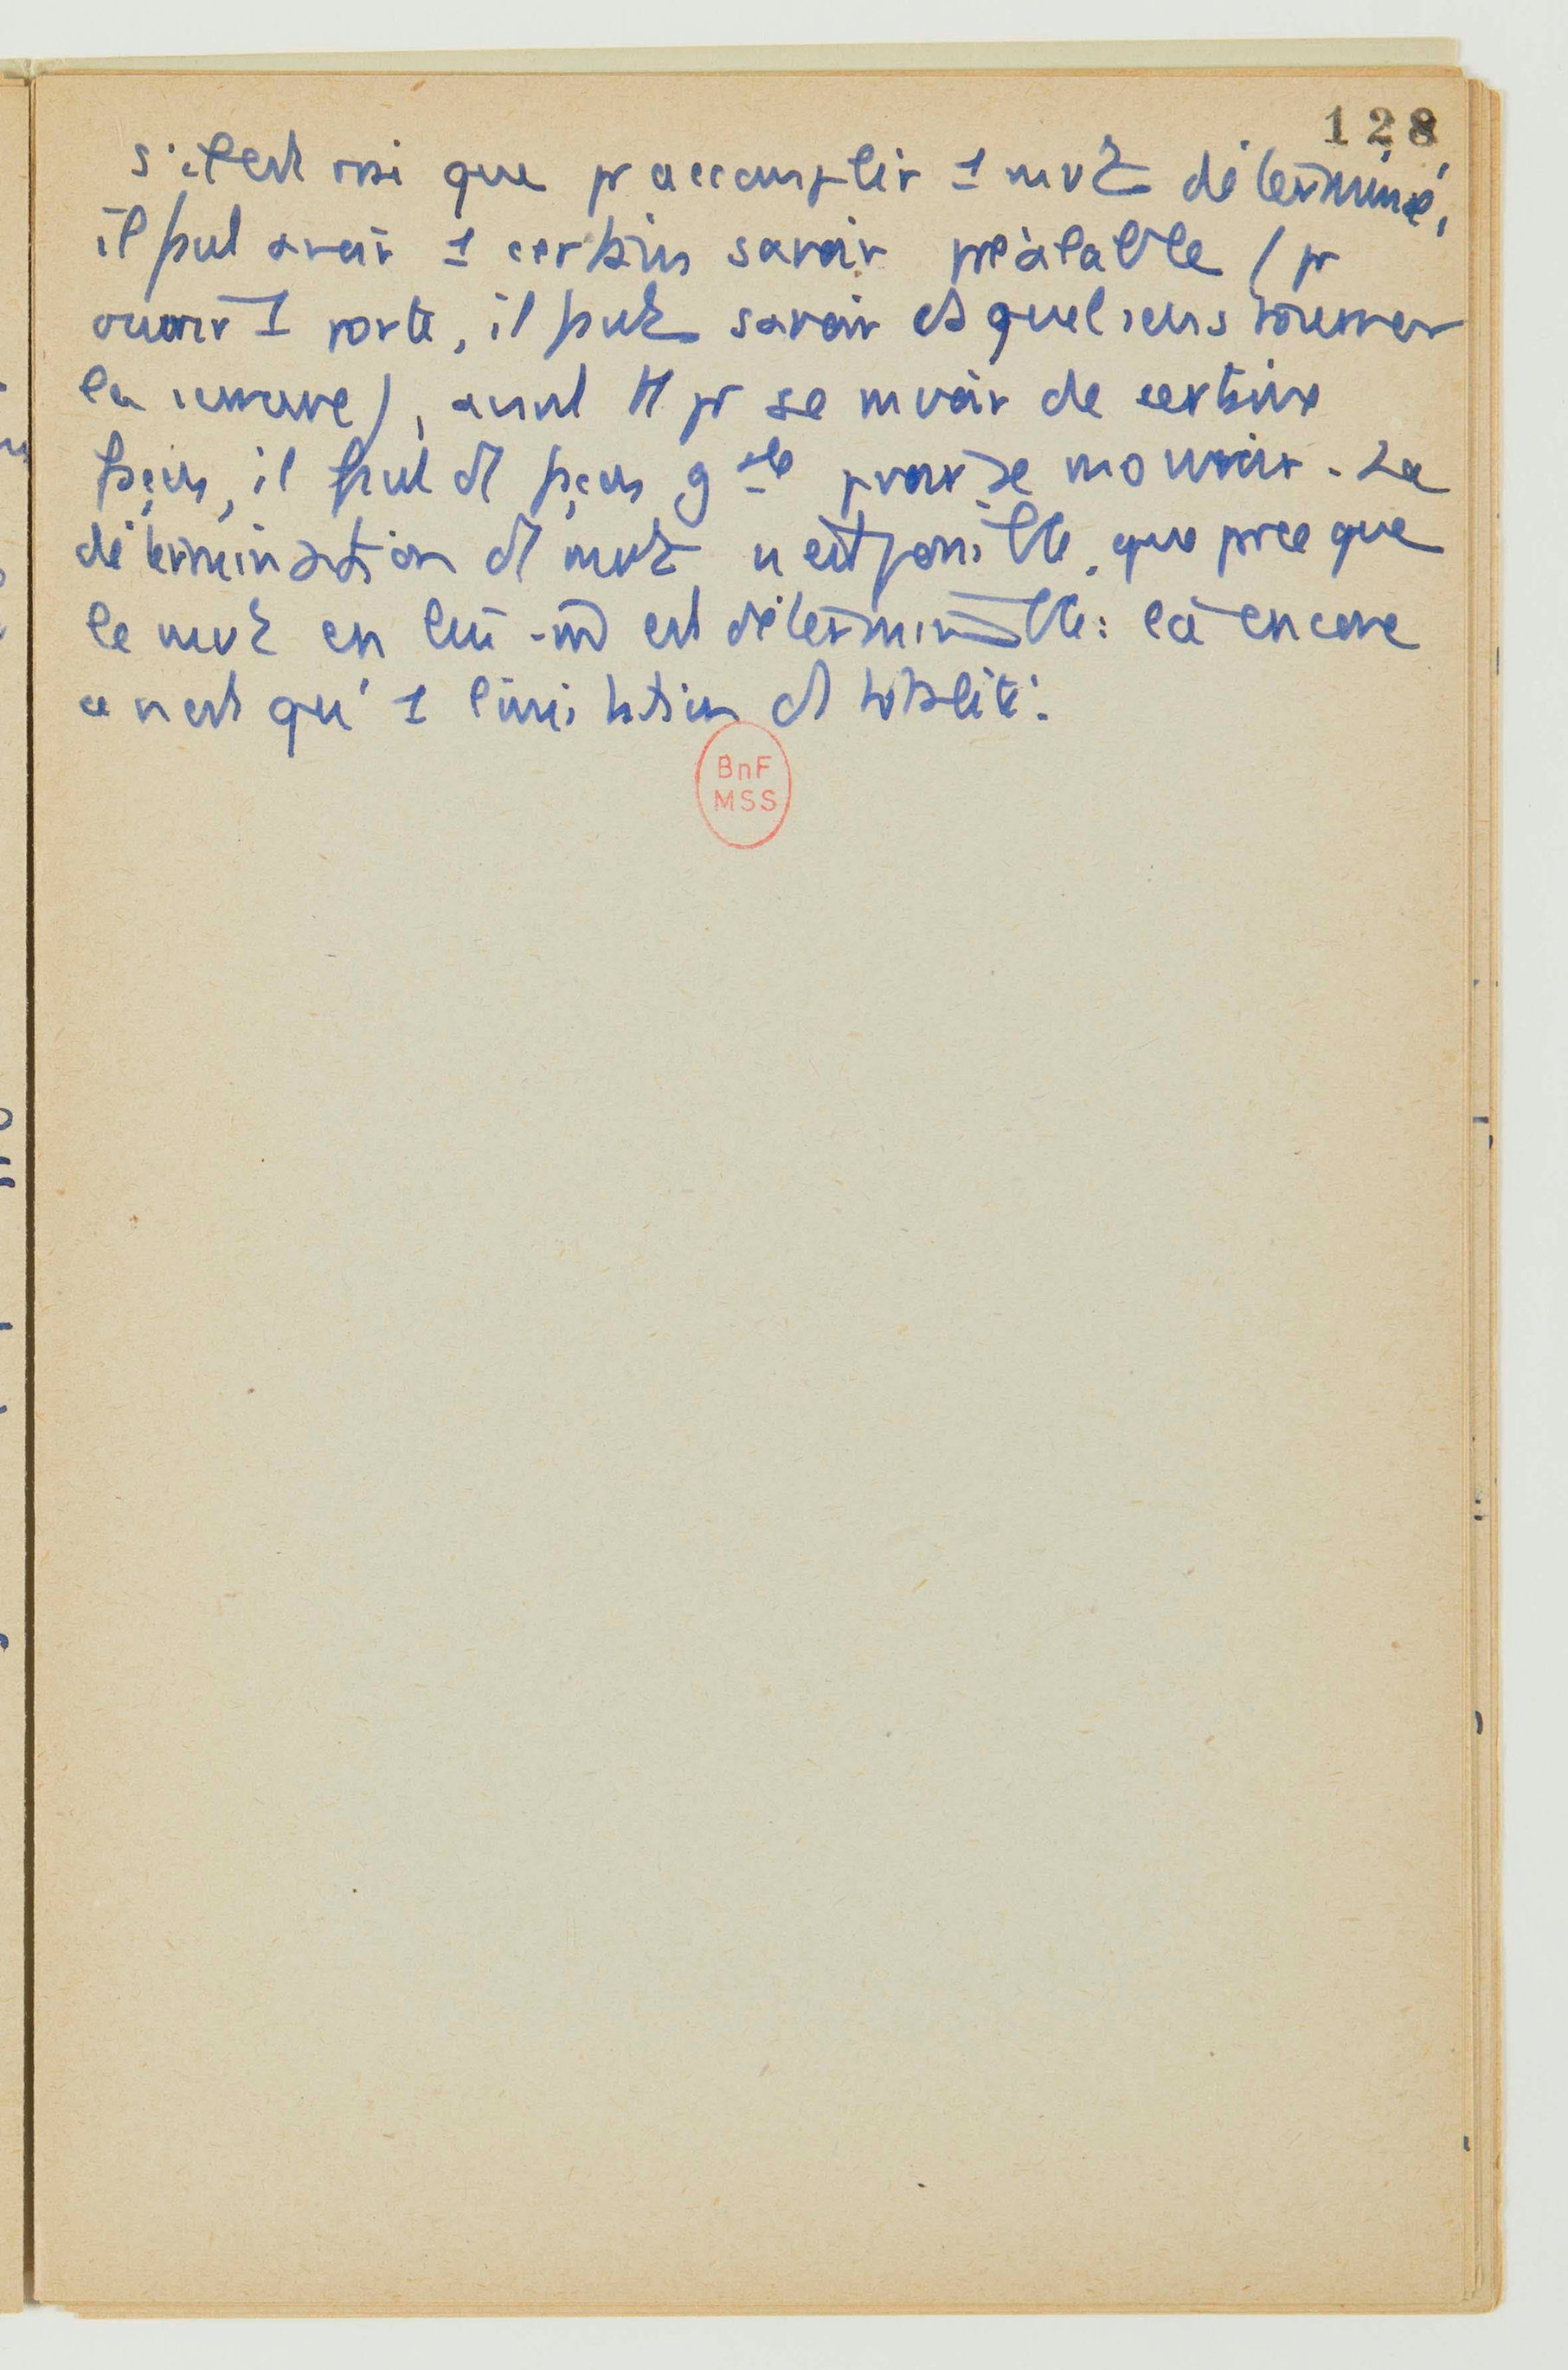 128
s'il est vrai que pr accomplir 1 mvt déterminé,
il faut avoir 1 certain savoir préalable (pr
ouvrir 1 porte, il faut savoir ds quel sens tourner
la serrure), avant tt pr se mvoir de certaine
façon, il faut d façon gale pvoir se mouvoir. La
détermination d mvt n'est possible que parce que
le mvt en lui-m est déterminable : là encore
ce n'est qu'1 limitation d totalité.
BnF
MSS